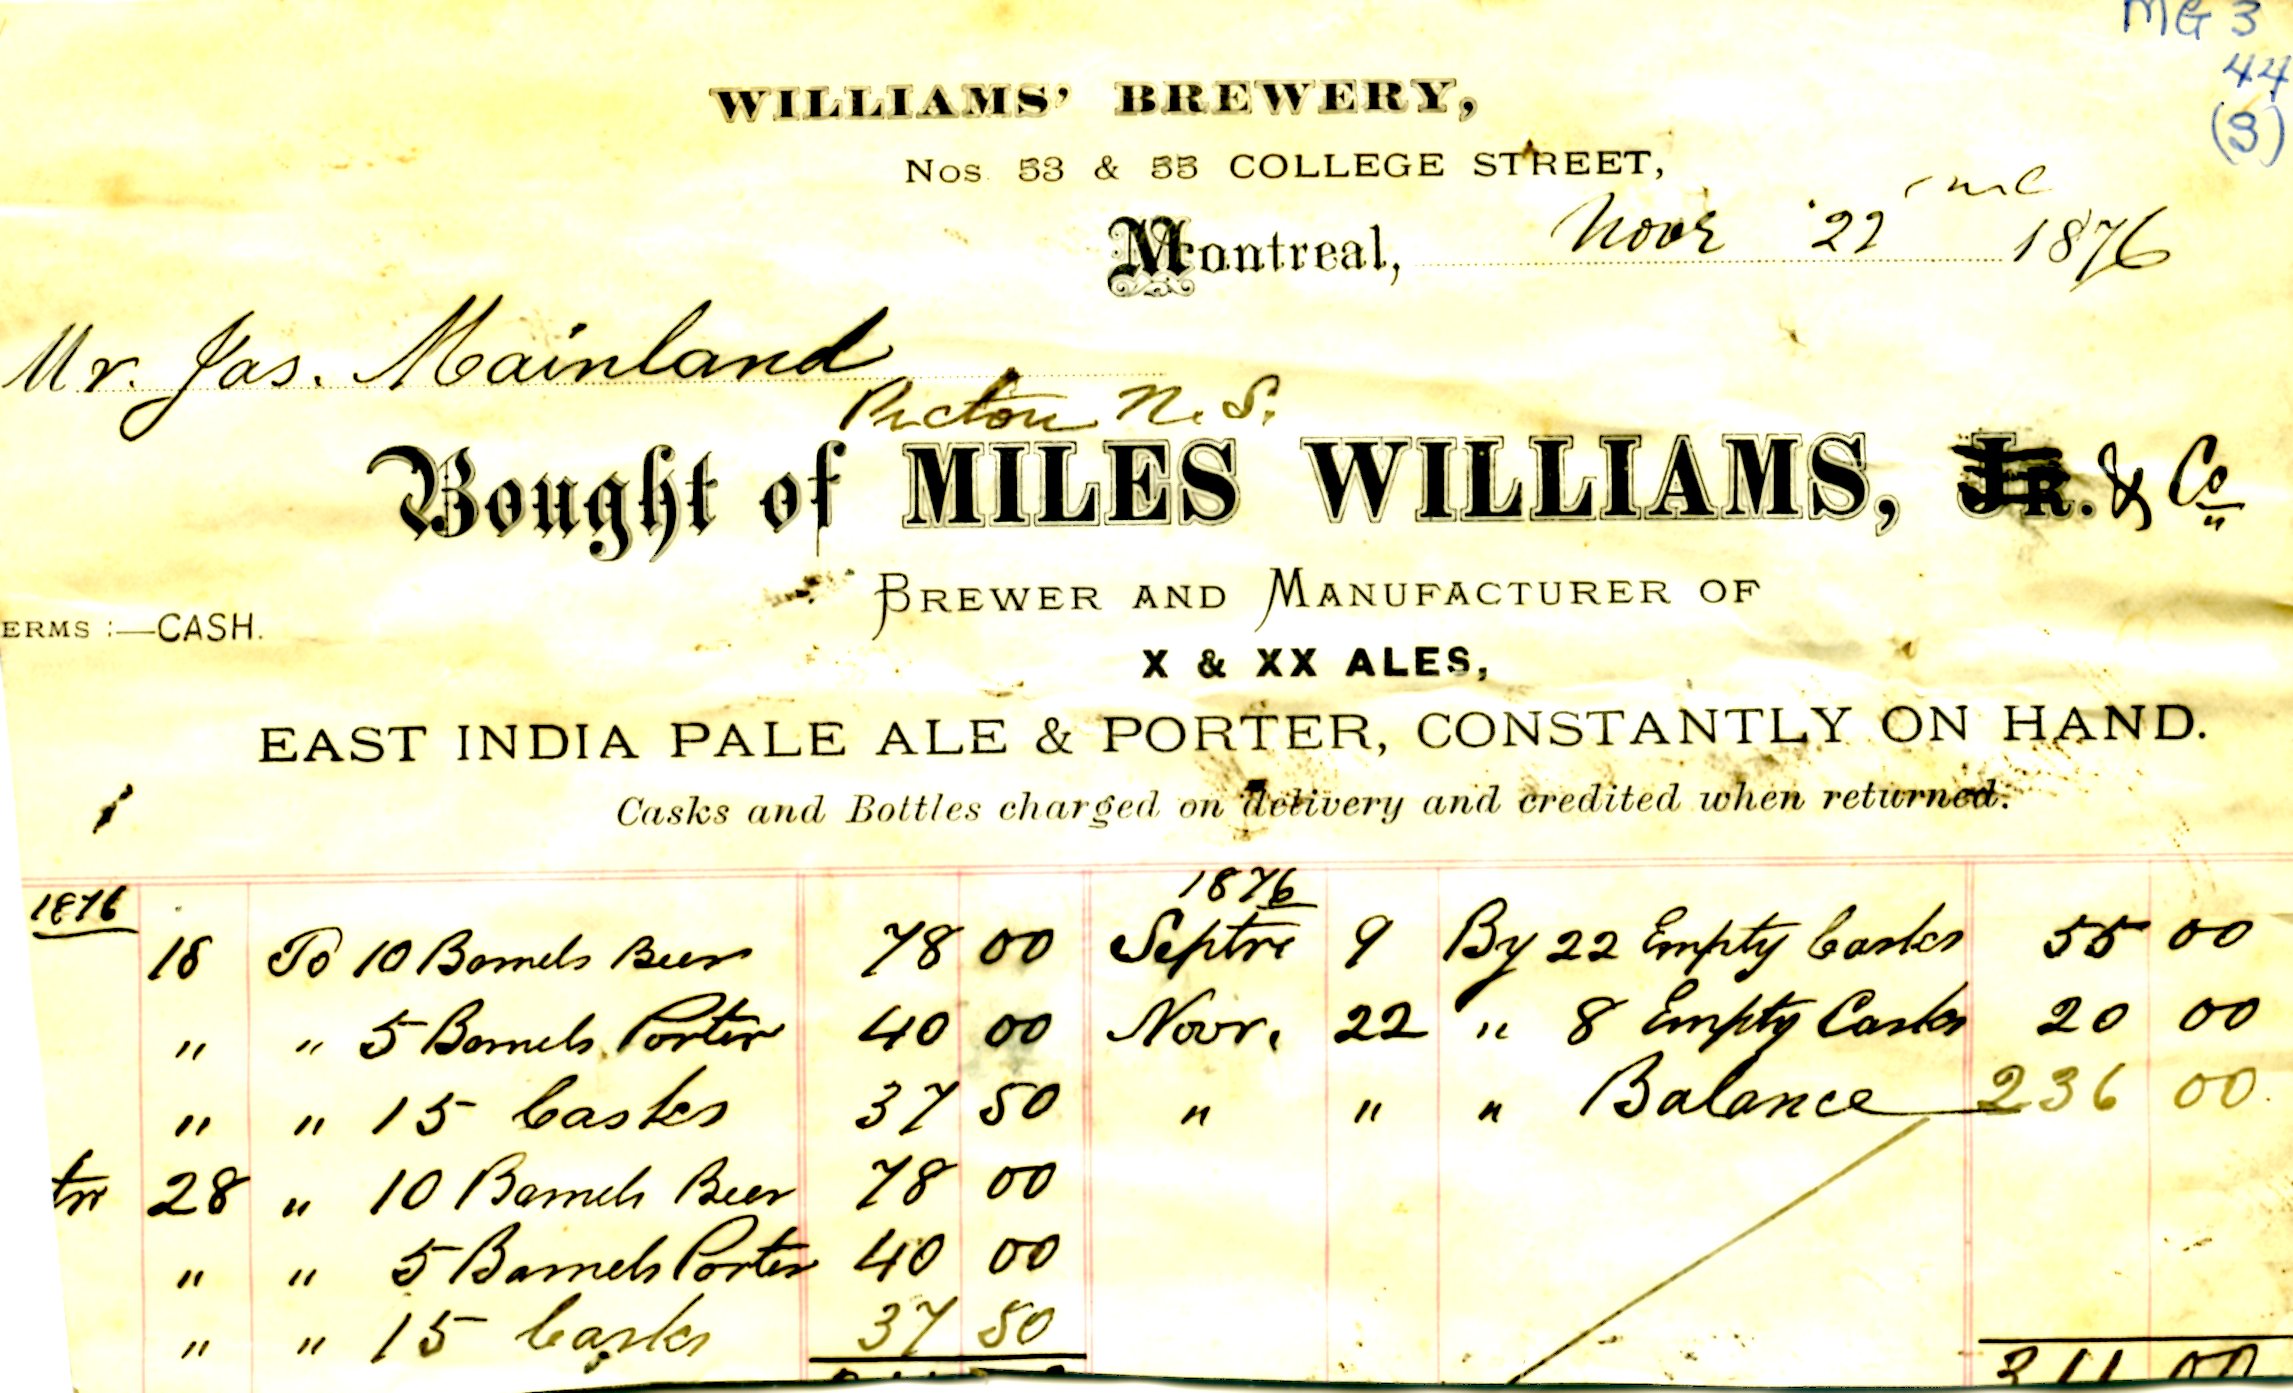 MG 3
44
(3)
WILLIAMS' BREWERY,
Nos 53 & 55 COLLEGE STREET,
Montreal, Novr 22 1876
Mr. Jas. Mainland
Pictou N. S.
Bought of MILES WILLIAMS, JR. & Co
BREWER AND MANUFACTURER OF
ERMS :—CASH.
X & XX ALES,
EAST INDIA PALE ALE & PORTER, CONSTANTLY ON HAND.
Casks and Bottles charged on delivery and credited when returned.
1876 1876
18 To 10 Barrels Beer 78 00 Septre 9 By 22 Empty Casks 55 00
" " 5 Barrels Porter 40 00 Novr. 22 " 8 Empty Casks 20 00
" " 15 Casks 37 50 " " " Balance 236 00
28 " 10 Barrels Beer 78 00
" " 5 Barrels Porter 40 00
" " 15 Casks 37 50
311 00